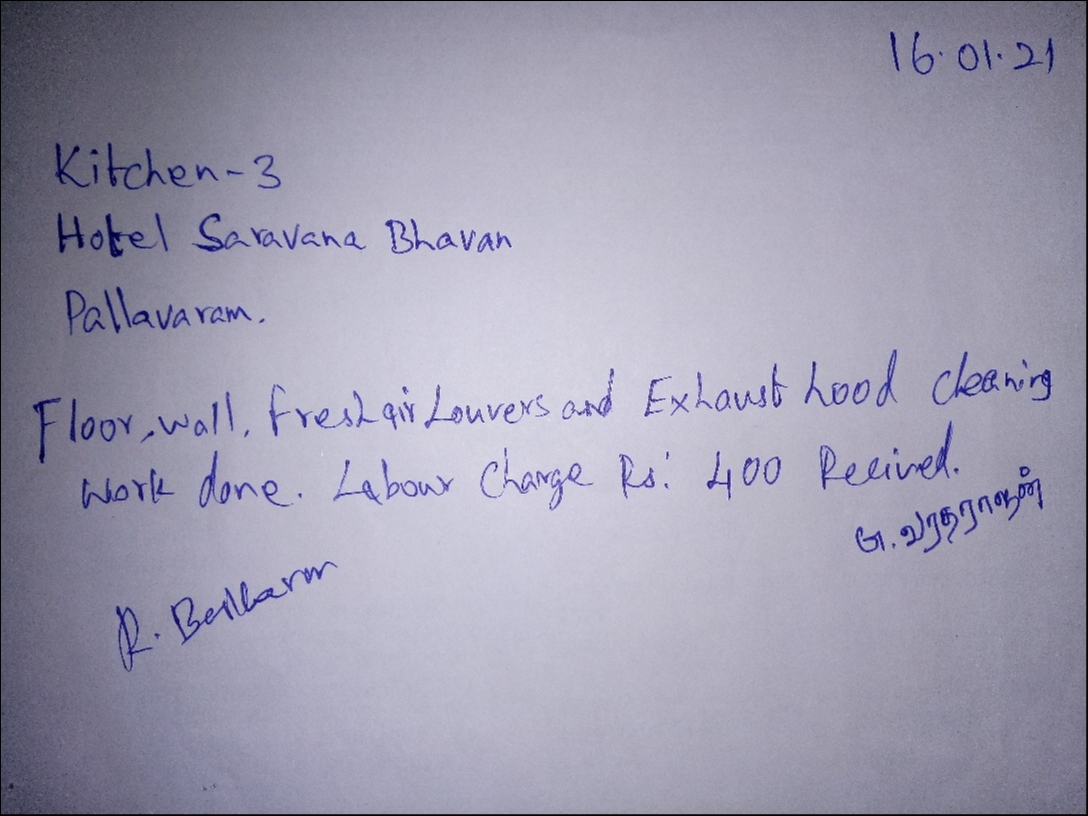 16.01.21
Kitchen-3
Hotel Saravana Bhavan
Pallavaram.
Floor, wall, fresh air Louvers and Exhaust hood cleaning
work done. Labour Charge Rs: 400 Recived.
G. வரதராஜன்
R.